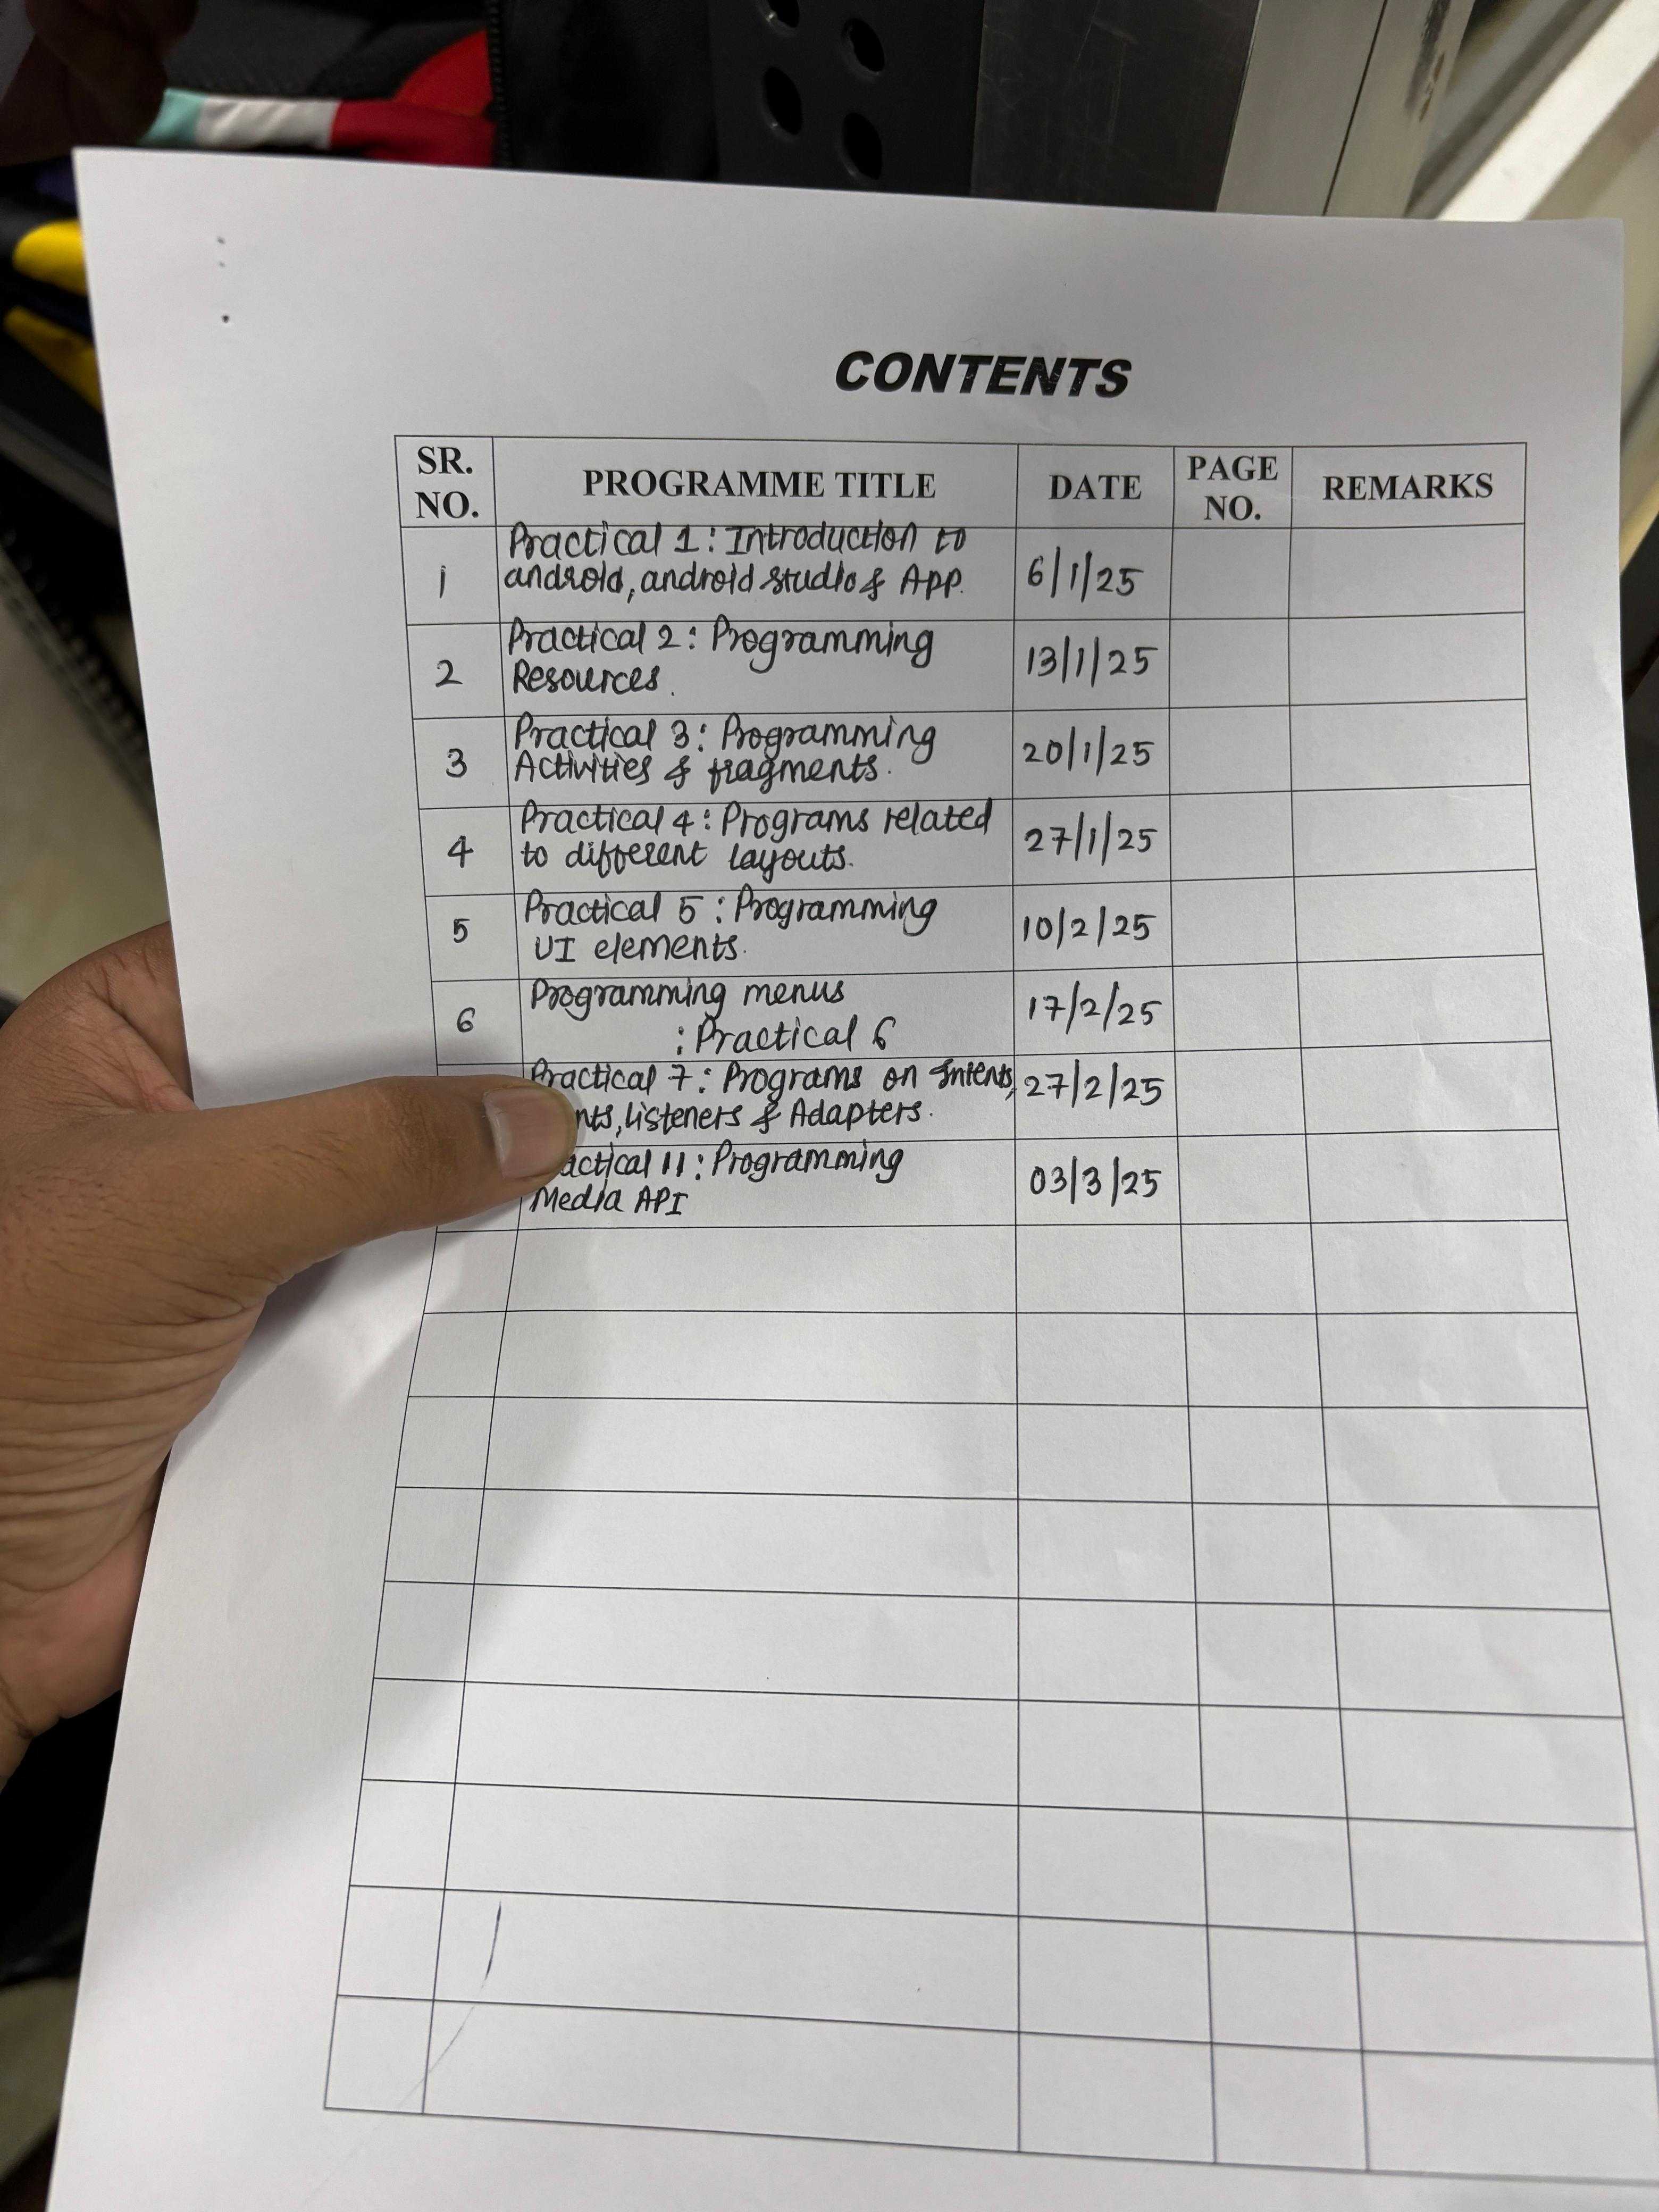 CONTENTS
SR. NO. PROGRAMME TITLE DATE PAGE NO. REMARKS
1 Practical 1: Introduction to
android, android studio & App. 6/1/25
2 Practical 2: Programming
Resources. 13/1/25
3 Practical 3: Programming
Activities & fragments. 20/1/25
4 Practical 4: Programs related
to different layouts. 27/1/25
5 Practical 5: Programming
UI elements. 10/2/25
6 Programming menus
: Practical 6 17/2/25
Practical 7: Programs on Intents, 27/2/25
listeners & Adapters.
11: Programming
Media API 03/3/25